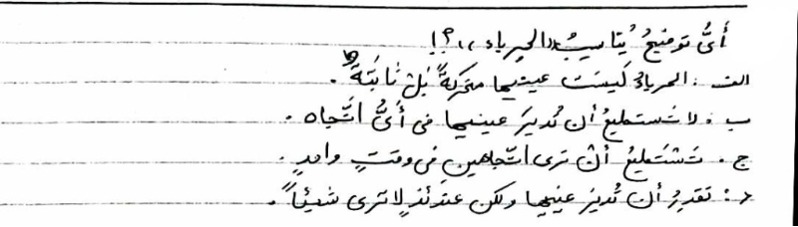 أَىُّ توضيحُ يُناسِبُ «الحِرباء»؟!
الف: الحرباءُ لَيسَت عينيها متحركةً بَل ثابَتةً.
ب: لا تَستطيعُ أن تُديرَ عينيها فى أىُّ اتّجاه.
ج: تَسْتَطيعُ أنْ ترى اتّجاهينِ فى وقتٍ واحدٍ.
د: تَقدِرُ أن تُديرَ عينيها ولكن عندئذٍ لا ترى شيئاً.